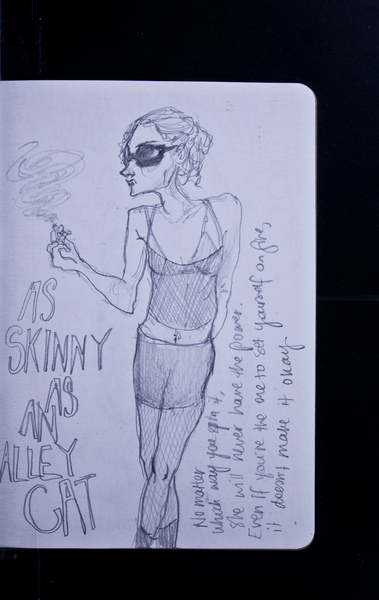 AS
SKINNY
AS
AN
ALLEY
CAT
No matter
which way you spin it,
She will never have the power.
Even if you're the one to set yourself on fire,
it doesn't make it okay.